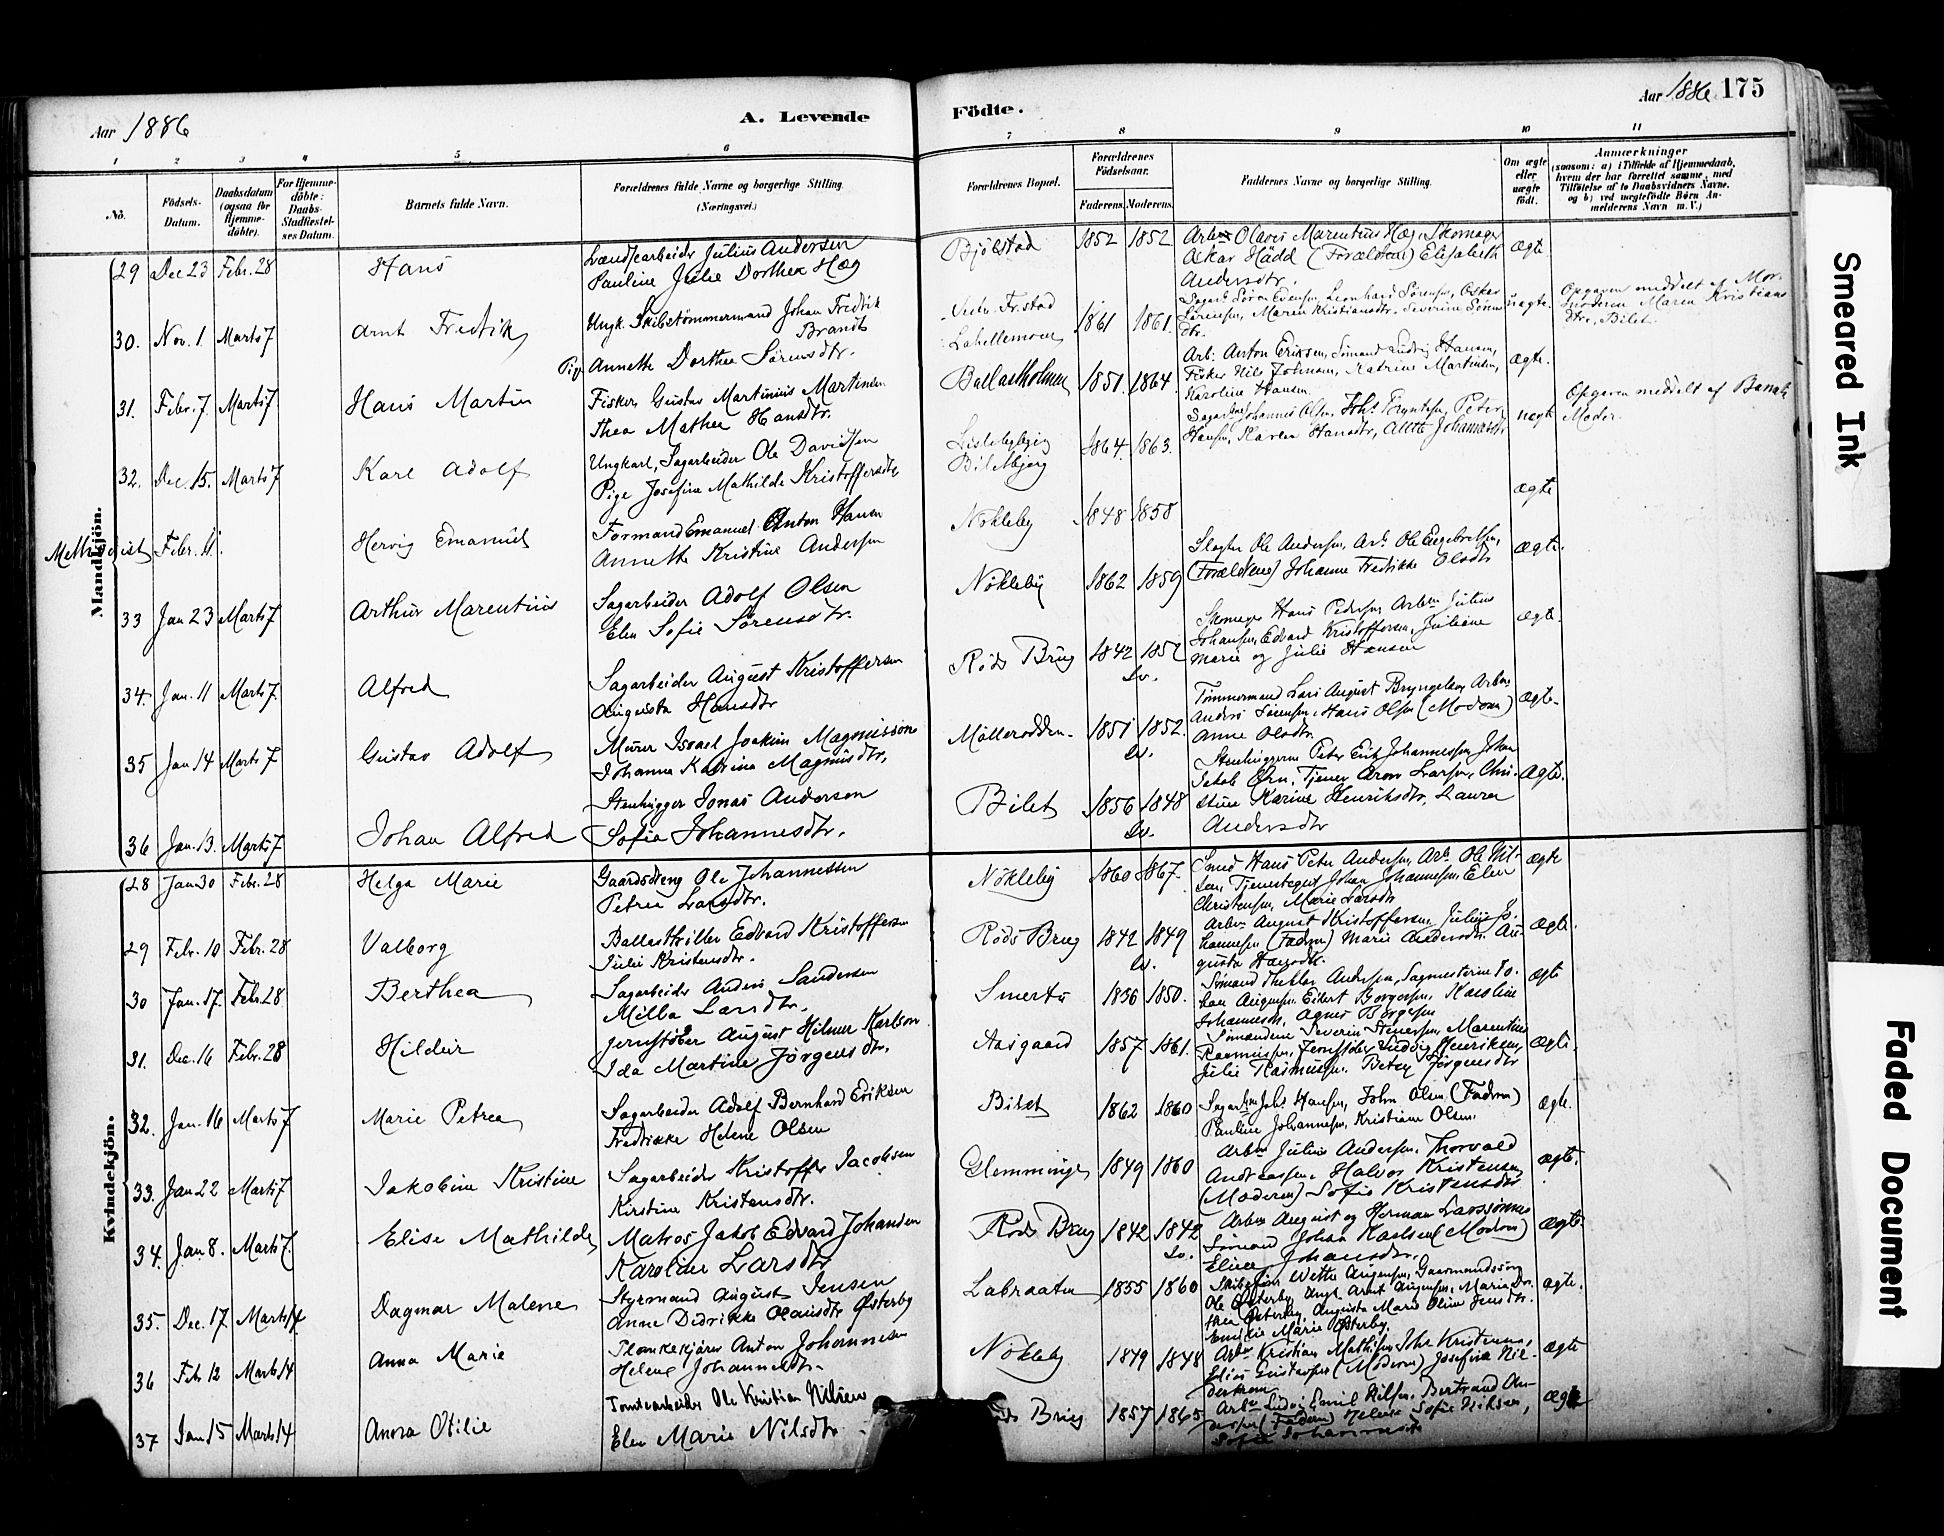 Aar 1886
A. Levende
Födte.
Aar 1886. 175
1 2 3 4 5 6 7 8 9 10 11
No.
Födsels-
Datum.
Daabsdatum
(ogsaa for
Hjemme-
döbte).
For Hjemme-
döbte:
Daabs-
Stadfæstel-
ses Datum.
Barnets fulde Navn.
Forældrenes fulde Navne og borgerlige Stilling.
(Næringsvei.)
Forældrenes Bopæl.
Forældrenes
Födselsaar.
Faderens. Moderens.
Faddernes Navne og borgerlige Stilling.
Om ægte
eller
uægte
födt.
Anmærkninger
(saasom: a) i Tilfælde af Hjemmedaab,
hvem der har forrettet samme, med
Tilföielse af to Daabsvidners Navne,
og b) ved uægtefödte Börn An-
melderens Navn m. V.)
Mandkjön.
29 Dec 23 Febr. 28 Hans
Julius Andersen
Pauline Julie Dorthea Høg
Bjölstad 1852 1852
Olavis Marentius Høg, Skomager
Oskar Hädd (Forældrene) Elisabeth
Andersdtr.
ægte
30. Nov. 1 Marts 7 Arnt Fredrik
Ungk. Skibstömmermand Johan Fredrik
Brandt
Pig. Annette Dorthea Sörensdtr.
1861 1861.
uægte.
Opgaven meddelt af Mor-
moderen Maren Kristians
dtr., Bilet.
31. Febr. 7. Marts 7 Hans Martin
Fisker Gustav Martinius Martinsen
Thea Mathea Hansdtr.
Ballastholmen 1851. 1864.
Arb: Anton Eriksen, Sömand Ludvig Hansen,
Fisker Nils Johnsen, Katrine Martinsen,
Karoline Hansen.
ægte.
32. Dec. 15. Marts 7 Karl Adolf
Ungkarl, Sagarbeider Ole Davidsen
Pige Josefine Mathilde Kristoffersdtr
1864. 1863.
uægte
Opgaven meddelt af Barnets
Moder.
Methodist Febr. 11. Hervig Emanuel
Formand Emanuel Anton Hansen
Annette Kristine Andersen
Nökleby 1848 1858
ægte
33 Jan 23 Marts 7 Arthur Marentius
Sagarbeider Adolf Olsen
Elen Sofie Sörensdtr.
Nökleby 1862 1859
Slagter Ole Andersen, Arb. Ole Engebretsen,
(Forældrene) Johanne Fredrikke Olsdtr
ægte.
34. Jan. 11 Marts 7. Alfred
Sagarbeider August Kristoffersen
Augusta Hansdtr
Röds Brug 1842 1852
Sv.
Skomager Hans Pedersen, Arbm Julius
Johansen, Edvard Kristoffersen, Juliane
Marie og Julie Hansen
ægte.
35 Jan 14 Marts 7 Gustav Adolf
Murer Israel Joakim Magnisson
Johanna Katrina Magnusdtr.
Mölleradden. 1851 1852.
Sv.
Tömmermand Lars August Bryngelsen, Arbm
Anders Sörensen, Hans Olsen (Modren)
Anne Olsdtr.
ægte.
36 Jan. 13. Marts 7 Johan Alfred
Stenhugger Jonas Anderson
Sofia Johannesdtr.
Bilet 1856 1848
Sv.
Stenhuggerne Peter Erik Johannessen, Johan
Jakob Örn, Tjener Aron Larsen, Chri-
stine Karine Henriksdtr, Laura
Andersdtr
ægte.
Kvindekjön.
28 Jan 30 Febr. 28 Helga Marie
Gaardsdreng Ole Johannessen
Petrea Larsdtr.
Nökleby 1860 1867.
Smed Hans Peter Andersen, Arb. Ole Nil-
sen, Tjenestegut Johan Johannessen, Elen
Christensen, Marie Larsdtr
ægte
29 Febr. 10 Febr. 28 Valborg
Ballasttriller Edvard Kristoffersen
Julie Kristensdtr.
Röds Brug 1842 1849
Sv.
Arbm August Kristoffersen, Julius Jo-
hannesen (Fadren) Marie Andersdtr. Au-
gusta Hansdtr.
ægte.
30 Jan. 17. Febr. 28 Berthea
Sagarbeider Anders Sandersen
Milla Larsdtr.
Smertu 1856 1850.
ægte
31. Dec. 16 Febr. 28 Hildur
Jernstöber August Hilmer Karlson
Ida Martine Jörgensdtr.
Aasgaard 1857 1861.
Sömændene Severin Stenersen, Marentius
Rasmussen, Jernstöber Ludvig Henriksen,
Julie Rasmussen. Betzy Jörgensdtr
ægte.
32. Jan. 16 Marts 7 Marie Petrea
Sagarbeider Adolf Bernhard Eriksen
Fredrikke Helene Olsen
Bilet 1862 1860
Johs Hansen, John Olsen (Fadren)
Pauline Johannessen, Kristiane Olsen.
ægte.
33. Jan 22 Marts 7 Jakobine Kristine
Sagarbeider Kristoffer Jacobsen
Kirstine Kristensdtr.
Glemminge 1849 1860
Arbm Julius Andersen, Thorvald
Andreassen, Halvor Kristensen,
(Moderen) Sofie Kristensdtr
ægte.
34. Jan 8. Marts 7. Elise Mathilde
Matros Jakob Edvard Johansen
Karoline Larsdtr
Röds Brug 1842 1842
Sv.
Arbm August og Herman Larssönner
Sömand Johan Karlsen (Modren)
Eline Johansdtr.
ægte.
35. Dec. 17 Marts 14 Dagmar Malene
Styrmand August Jensen
Anne Didrikke Olausdtr Østerby
Labraaten 1855 1860
Emilie Marie Østerby.
ægte.
36 Feb 12 Marts 14 Anna Marie
Plankekjörer Anton Johannesen
Helene Johannesdtr.
Nökleby 1849 1848
Arbm Kristian Mathisen, Johs Kristensen,
Elias Gustavsen (Moderen) Josefine Nil-
ægte
37 Jan 15 Marts 14 Anna Otilie
Tomtearbeider Ole Kristian Nilsen
Elen Marie Nilsdtr.
Brug 1857 1865
Emil Nilsen, Bertrand An-
(Fadren) Helene Sofie Nilsen,
Sofie Johannesdtr
ægte
Smeared Ink
Faded Document